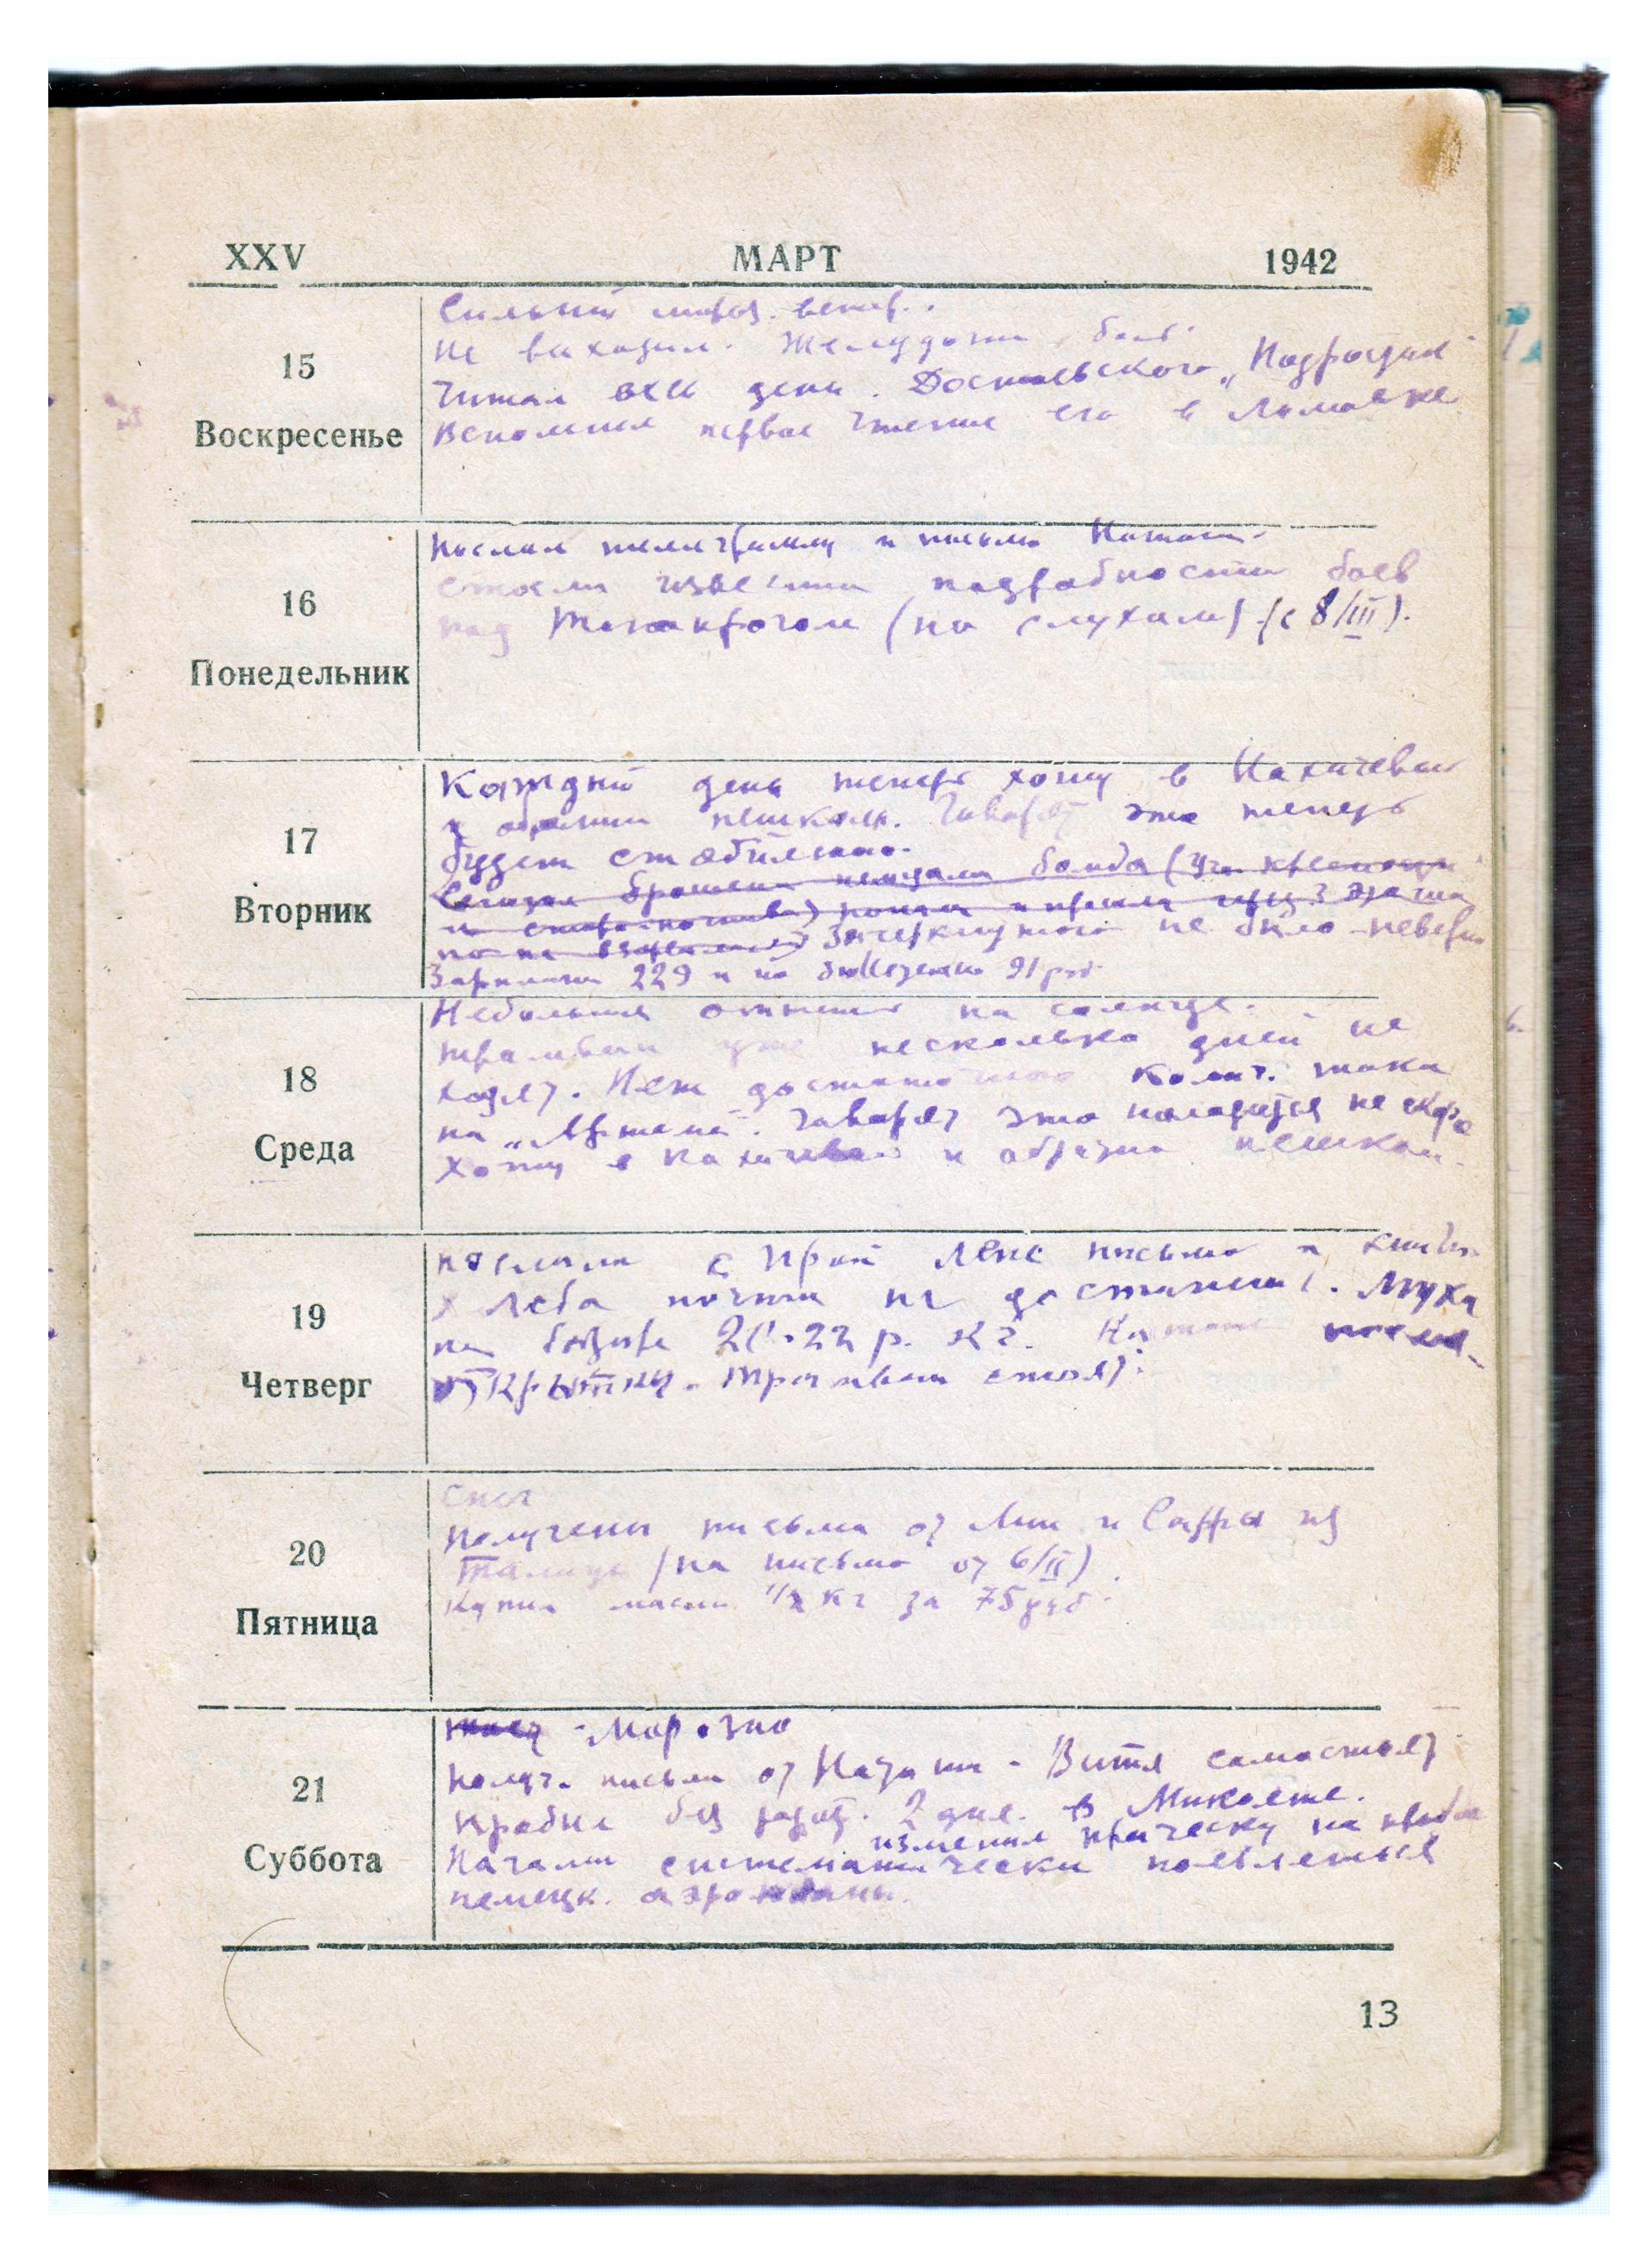 XXV МАРТ 1942
15
Воскресенье
Сильный мороз. ветер.
Не выходил. Желудочн. боль
Читал весь день. Достоевского „Подросток“
Вспомнил первое чтение его в
16
Понедельник
Послал телеграмму и письмо Наташе.
Стали известны подробности боев
под Таганрогом (по слухам) (с 8/III).
17
Вторник
Каждый день теперь хожу в Нахичевань
и обратно пешком. Говорят это теперь
будет стабильно.
Сегодня брошена немцами бомба
но не взорвалась) Зачеркнутого не было - неверно
Зарплата 229 и по бюллетеню 91 руб.
18
Среда
Небольшая оттепель на солнце.
Трамваи уже несколько дней не
ходят. Нет достаточного колич. тока
на „Артеме“. Говорят это наладится не скоро
Хожу в Нахичевань и обратно пешком.
19
Четверг
Послали с Ирой Лене письмо и
Хлеба почти не достанешь. Мука
на базаре 20-22 р. кг. Наташе послал
открытку. Трамваи стоят.
20
Пятница
Снег
Получены письма от Лии и из
Талицы (на письмо от 6/II).
Купил масла 1/2 кг за 75 руб.
21
Суббота
Морозно
Получ. письмо от Наташи. Витя самостоят.
2 дня. в
изменил прическу на пробор
Начали систематически появляться
немецк. аэропланы.
13